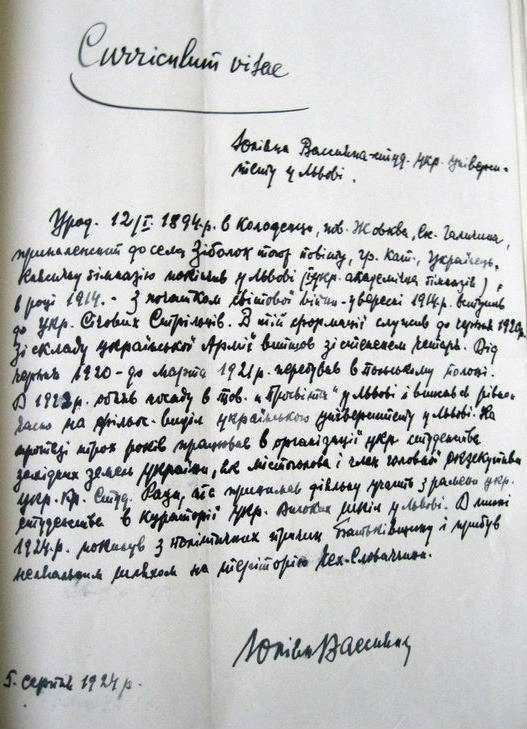 Curriculum vitae
Юліяна Вассияна - студ. укр. універси-
тету у Львові.
Урод. 12/I. 1894 р. в Колоденцю, пов. Жовква, Сх. Галичина,
приналежний до села Зіболок того повіту, гр. кат., українець.
Клясичну гімназію покінчив у Львові (укр. академічна гімназія),
в році 1914. - З початком світової війни - у вересні 1914 р. вступив
до Укр. Січових Стрільців. В тій формації служив до 1920 р.
Зі складу української Армії вийшов зі степенем четаря. Від
червня 1920 - до марта 1921 р. перебував в польському полоні.
В 1921 р. обняв посаду в тов. "Просвіта" у Львові і вписався рівно-
часно на фільос. виділ українського університету у Львові. На
протязі трох років працював в організації укр. студенства
західних земель України, як містоголова і член головної екзекутиви
укр. кр. студ. Ради, та приймав діяльну участь з рамени укр.
студенства в Кураторії укр. високих шкіл у Львові. В липні
1924 р. покинув з політичних причин Батьківщину і прибув
нелегальним шляхом на територію Чех-Словаччини.
Юліян Вассиян
5. серпня 1924 р.